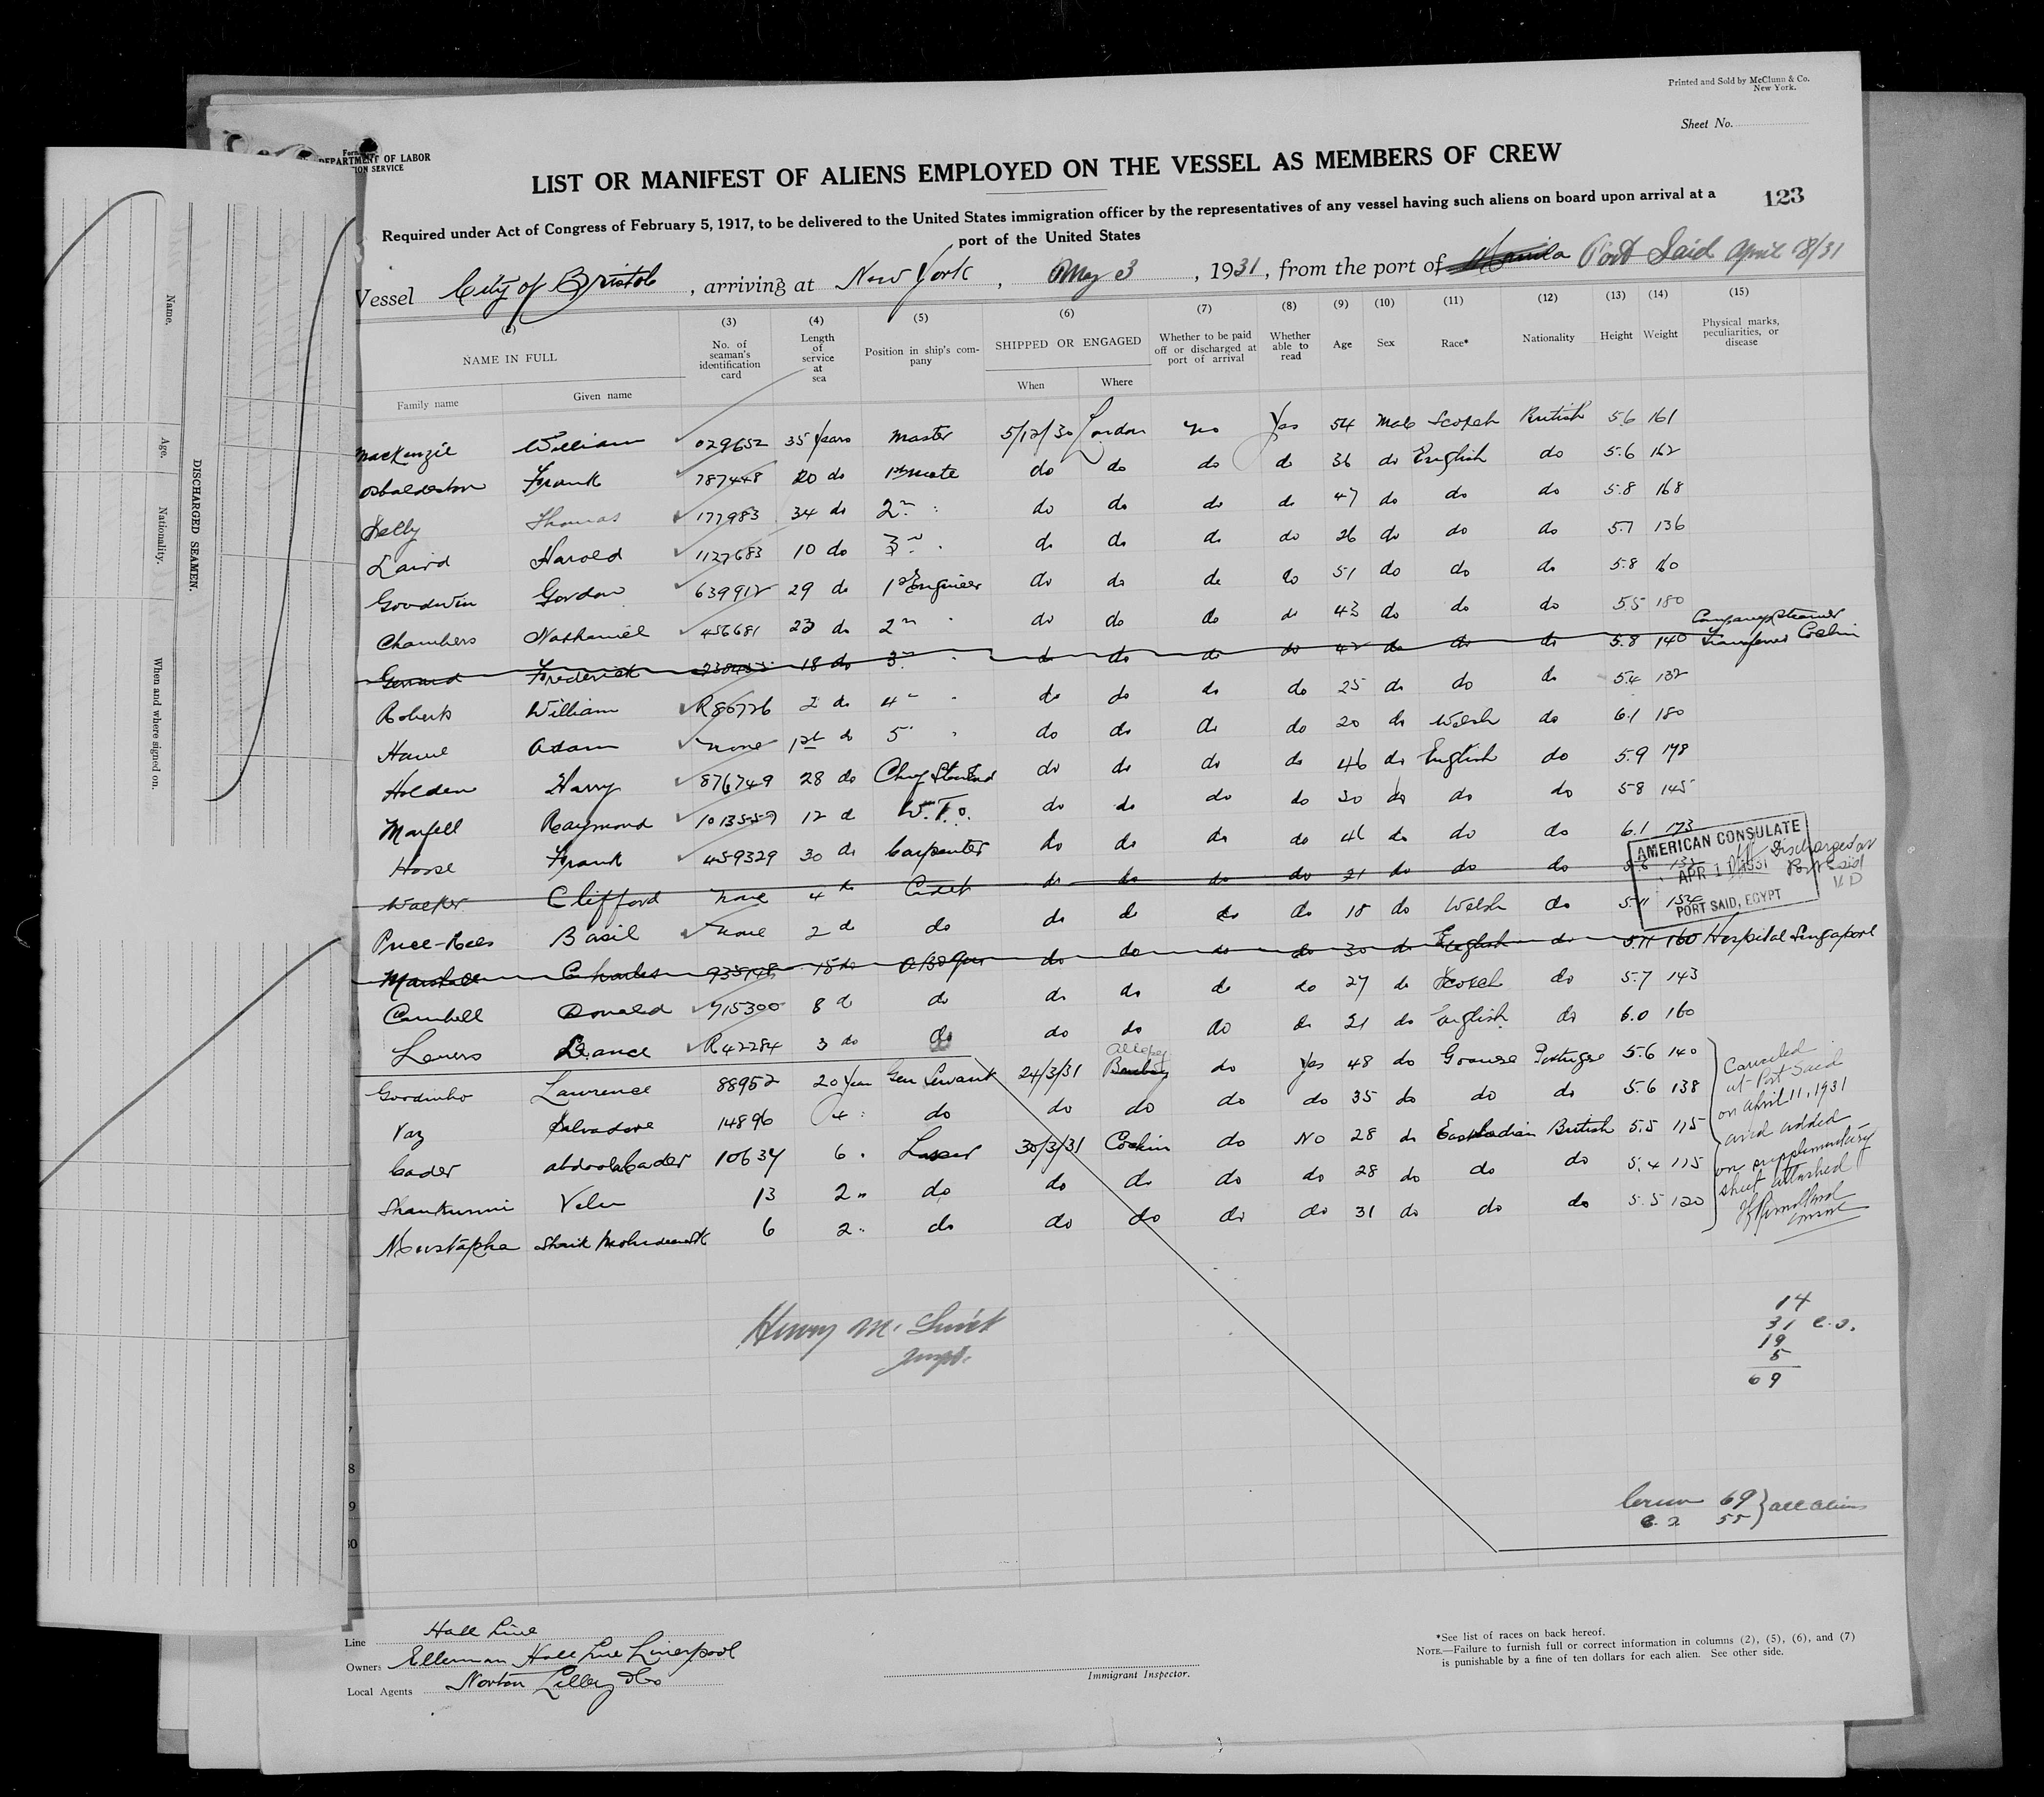 Printed and Sold by McClunn & Co.
New York.
Sheet No.
DEPARTMENT OF LABOR
ION SERVICE
LIST OR MANIFEST OF ALIENS EMPLOYED ON THE VESSEL AS MEMBERS OF CREW
123
Required under Act of Congress of February 5, 1917, to be delivered to the United States immigration officer by the representatives of any vessel having such aliens on board upon arrival at a
port of the United States
Vessel City of Bristol, arriving at New York, May 3, 1931, from the port of Manila Port Said April 18/31
(3) (4) (5) (6) (7) (8) (9) (10) (11) (12) (13) (14) (15)
NAME IN FULL
Family name Given name
No. of seaman's identification card
Length of service at sea
Position in ship's company
SHIPPED OR ENGAGED
When Where
Whether to be paid off or discharged at port of arrival
Whether able to read
Age Sex Race* Nationality Height Weight
Physical marks, peculiarities, or disease
MacKenzie William 029652 35 Years Master 5/12/30 London no Yes 54 Male Scotch British 5.6 161
Osbaldeston Frank 787448 20 do 1st mate do do do do 36 do English do 5.6 162
Kelly Thomas 177983 34 do 2nd do do do do 47 do do do 5.8 168
Laird Harold 1127683 10 do 3rd do do do do 26 do do do 5.7 136
Goodwin Gordon 639912 29 do 1st Engineer do do do do 51 do do do 5.8 160
Chambers Nathaniel 456681 23 do 2nd do do do do 43 do do do 5.5 180
Frederick 18 do 3rd do do do do 42 do do do 5.8 140 Company Steamer Transferred Cochin
Roberts William R86726 2 do 4th do do do do 25 do do do 5.4 132
Adam none 1st do 5th do do do do 20 do Welsh do 6.1 180
Holden Harry 876749 28 do Chief Steward do do do do 46 do English do 5.9 178
Raymond 1013559 12 do W.T.O. do do do do 30 do do do 5.8 145
Frank 459329 30 do Carpenter do do do do 46 do do do 6.1 173
Walker Clifford none 4 do Cadet do do do do 21 do do do Discharged at Port Said
Price-Rees Basil none 2 do do do do do do 18 do Welsh do 5.11
Marshall Charles 15 do do do do do 30 do English do 5.11 160 Hospital Singapore
Cambell Donald 715300 8 do do do do do do 27 do Scotch do 5.7 143
Levers Lance R42284 3 do do do do do do 21 do English do 6.0 160
Goodinho Lawrence 88952 20 Years Gen Servant 24/3/31 Bombay Allepey do Yes 48 do Goanese Portugese 5.6 140
Vaz Salvadore 14896 4 do do do do do 35 do do do 5.6 138
Cader Abdoolcader 10634 6 Lascar 30/3/31 Cochin do No 28 do East Indian British 5.5 115
Shankunni Velu 13 2 do do do do do 28 do do do 5.4 115
Moustapha 6 2 do do do do do 31 do do do 5.5 120
AMERICAN CONSULATE
APR 1 1931
PORT SAID, EGYPT
Canceled
at Port Said
on April 11, 1931
and added
on supplementary
sheet attached
Consul
Henry M.
Insp.
14
31 C.I.
19
5
69
Crew 69 } all aliens
55
8
9
30
Line Hall Line
Owners Ellerman Hall Line Liverpool
Local Agents Norton Lilly & Co
Immigrant Inspector.
*See list of races on back hereof.
NOTE.—Failure to furnish full or correct information in columns (2), (5), (6), and (7)
is punishable by a fine of ten dollars for each alien. See other side.
DISCHARGED SEAMEN.
Name. Age. Nationality. When and where signed on.